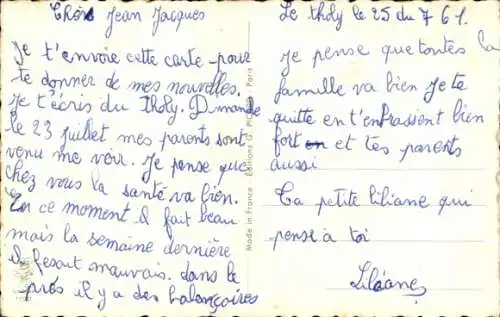 Cher Jean Jacques
Je t'envoie cette carte pour
te donner de mes nouvelles.
Je t'écris du tholy. Dimanche
le 23 juillet mes parents sont
venu me voir. Je pense que
chez vous la santé va bien.
En ce moment il fait beau
mais la semaine dernière
il fesait mauvais. dans le
près il y a des balançoires
Made in France Editions G. Paris
Le tholy le 25 du 7 61.
Je pense que toutes la
famille va bien Je te
quitte en t'enfrassent bien
fort et tes parents
aussi
Ta petite liliane qui
pense à toi
Liliane